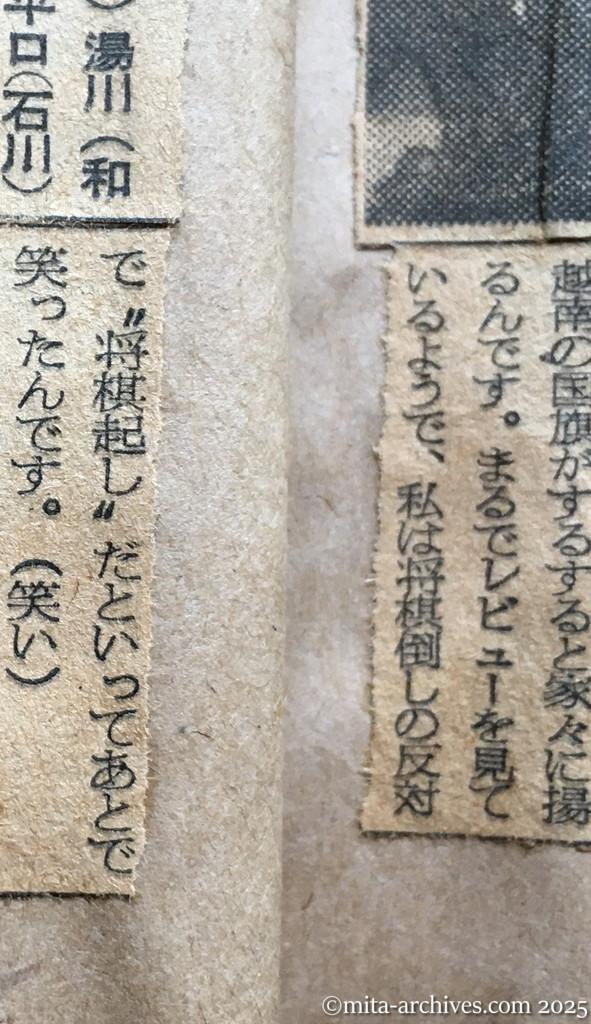 越南の国旗がするすると家々に揚
るんです。まるでレビューを見て
いるようで、私は将棋倒しの反対
で〝将棋起し〟だといってあとで
笑ったんです。（笑い）
）湯川（和
平口（石川）
©mita-archives.com 2025